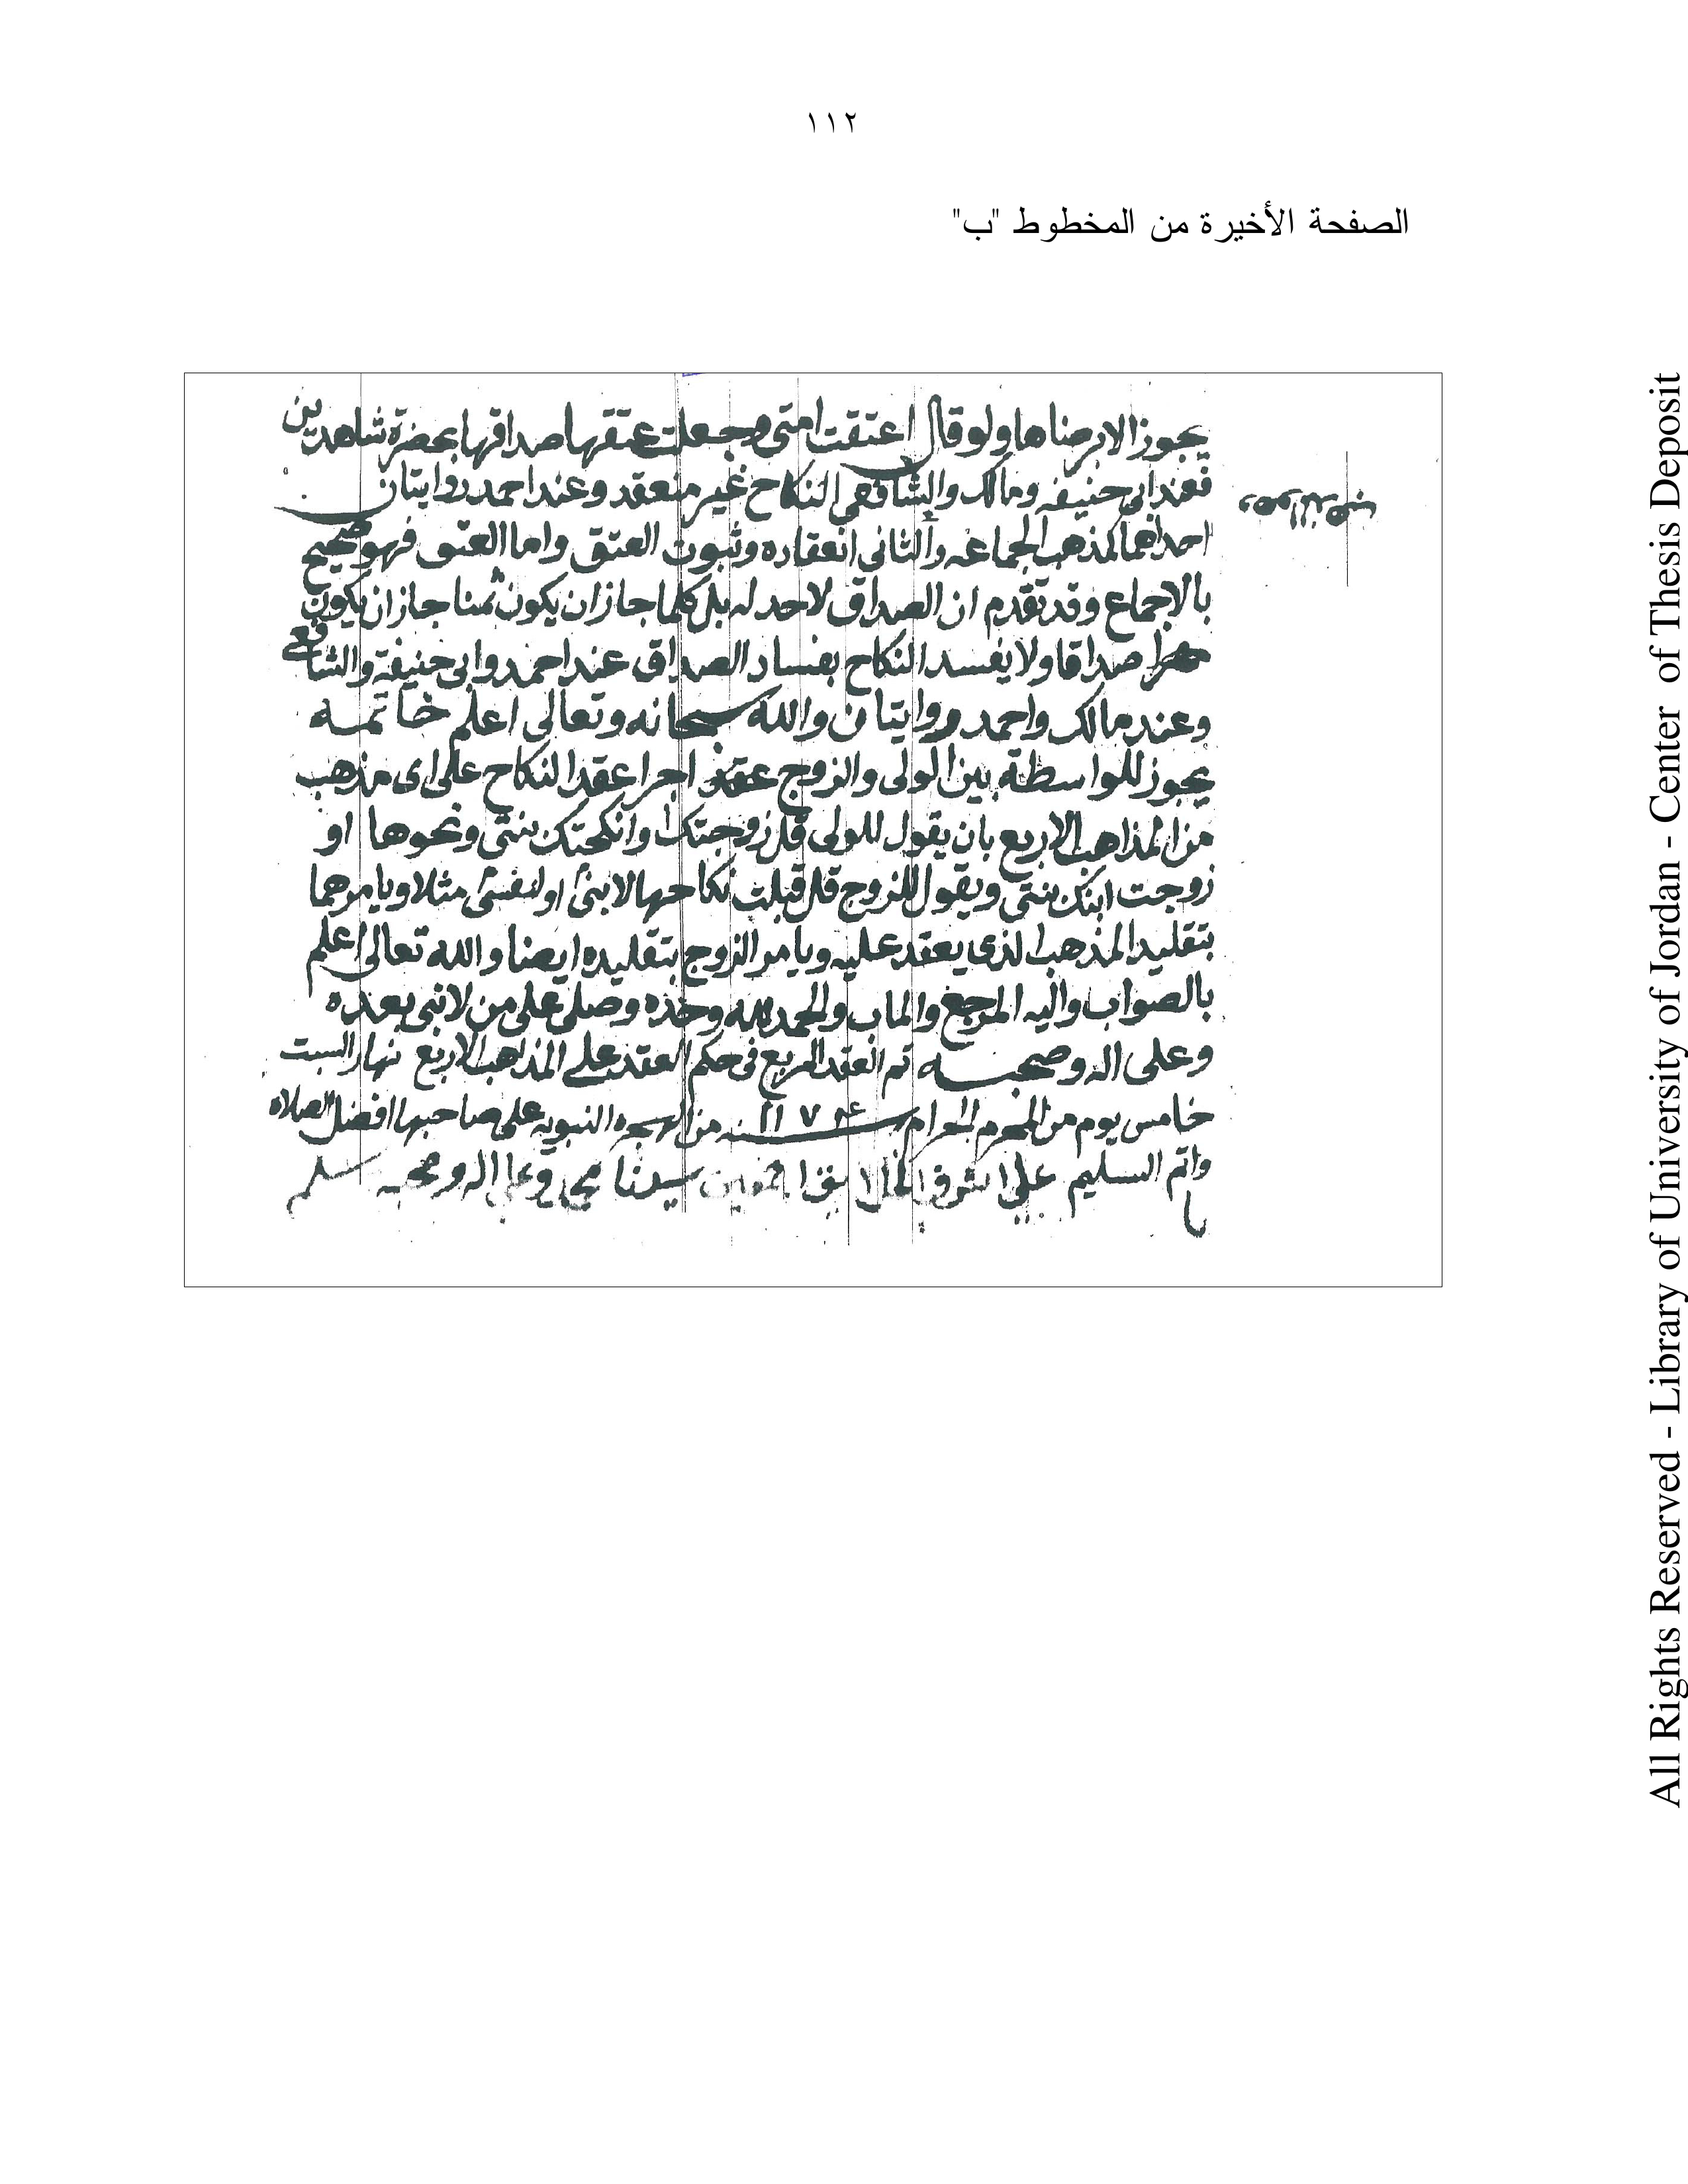 ١١٢
الصفحة الأخيرة من المخطوط "ب"
يجوز الا برضاها ولو قال اعتقت امتى وجعلت عتقها صداقها بحضرة شاهدين
فعند ابى حنيفه ومالك والشافعى النكاح غير منعقد وعند احمد روايتان
احداهما كمذهب الجماعه والثانى انعقاده وثبوت العتق واما العتق فهو صحيح
بالاجماع وقد تقدم ان الصداق لاحد له بل كلما جاز ان يكون ثمنا جاز ان يكون
صداقا ولا يفسد النكاح بفساد الصداق عند احمد وابى حنيفة والشافعى
وعند مالك واحمد روايتان والله سبحانه وتعالى اعلم خاتمه
يجوز للواسطة بين الولى والزوج اجرا عقد النكاح على اى مذهب
من المذاهب الاربع بان يقول للولى قل زوجتك وانكحتك بنتى ونحوها او
زوجت ابنك بنتى ويقول للزوج قل قبلت نكاحها لابنى او لنفسى مثلا ويامرهما
بتقليد المذهب الذى يعقد عليه ويامر الزوج بتقليده ايضا والله تعالى اعلم
بالصواب واليه المرجع والماب والحمد لله وحده وصلى على من لا نبى بعده
وعلى اله وصحبه تم العقد المربع فى حكم العقد على المذاهب الاربع نهار السبت
خامس يوم من المحرم الحرام سنه من الهجره النبويه على صاحبها افضل الصلاه
واتم التسليم على اشرف الخلايق اجمعين سيدنا محمد وعلى اله وصحبه وسلم
All Rights Reserved - Library of University of Jordan - Center of Thesis Deposit